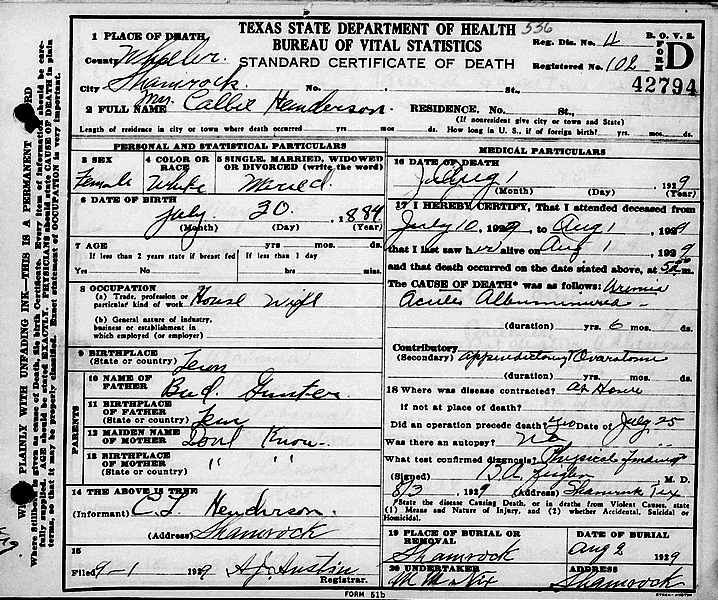 TEXAS STATE DEPARTMENT OF HEALTH 536
BUREAU OF VITAL STATISTICS
STANDARD CERTIFICATE OF DEATH
Reg. Dis. No. 4
Registered No. 102
B. O. V. S.
FORM D
42794
1 PLACE OF DEATH
County Wheeler.
City Shamrock. No. St.,
2 FULL NAME Mrs. Callie Henderson. RESIDENCE, No. St.,
(If nonresident give city or town and State)
Length of residence in city or town where death occurred yrs mos ds. How long in U. S., if of foreign birth? yrs. mos. ds.
WRITE PLAINLY WITH UNFADING INK—THIS IS A PERMANENT RECORD
PERSONAL AND STATISTICAL PARTICULARS
3 SEX
Female
4 COLOR OR RACE
White
5 SINGLE, MARRIED, WIDOWED OR DIVORCED (write the word)
Married.
6 DATE OF BIRTH
July. 30. 1889
(Month) (Day) (Year)
7 AGE yrs mos. ds.
If less than 2 years state if breast fed If less than 1 day
Yes No hrs. min.
8 OCCUPATION
(a) Trade, profession or particular kind of work House Wife
(b) General nature of industry, business or establishment in which employed (or employer)
9 BIRTHPLACE
(State or country) Tenn
PARENTS
10 NAME OF FATHER Bud. Gunter.
11 BIRTHPLACE OF FATHER
(State or country) Tenn
12 MAIDEN NAME OF MOTHER Dont Know.
13 BIRTHPLACE OF MOTHER " "
(State or country)
14 THE ABOVE IS TRUE
(Informant) C. L. Henderson.
(Address) Shamrock
15
Filed 9-1 1929 A.J. Austin
Registrar.
MEDICAL PARTICULARS
16 DATE OF DEATH
Aug 1 1929
(Month) (Day) (Year)
17 I HEREBY CERTIFY, That I attended deceased from
July 10, 1929, to Aug 1, 1929
that I last saw her alive on Aug 1, 1929
and that death occurred on the date stated above, at
The CAUSE OF DEATH* was as follows: Uremia
Acute
(duration) yrs. 6 mos. ds.
Contributory
(Secondary)
(duration) yrs. mos. ds.
18 Where was disease contracted? At Home
if not at place of death?
Did an operation precede death? Yes Date of July 25
Was there an autopsy? No
What test confirmed diagnosis? Physical findings
(Signed) B.A. Zeigler M. D.
8/3, 1929 (Address) Shamrock Tex
*State the disease Causing Death, or in deaths from Violent Causes, state (1) Means and Nature of Injury, and (2) whether Accidental, Suicidal or Homicidal.
19 PLACE OF BURIAL OR REMOVAL
Shamrock
DATE OF BURIAL
Aug 2 1929
20 UNDERTAKER
M M Nix
ADDRESS
Shamrock
FORM 51b